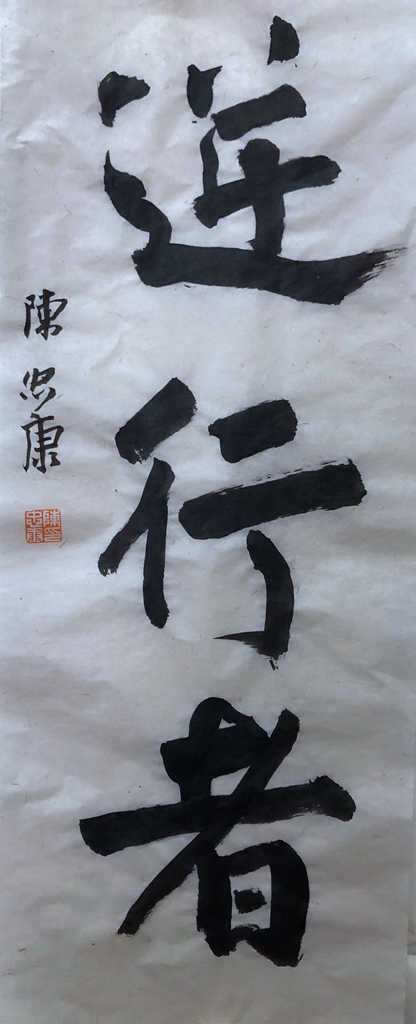 逆行者
陳忠康
陳忠康印